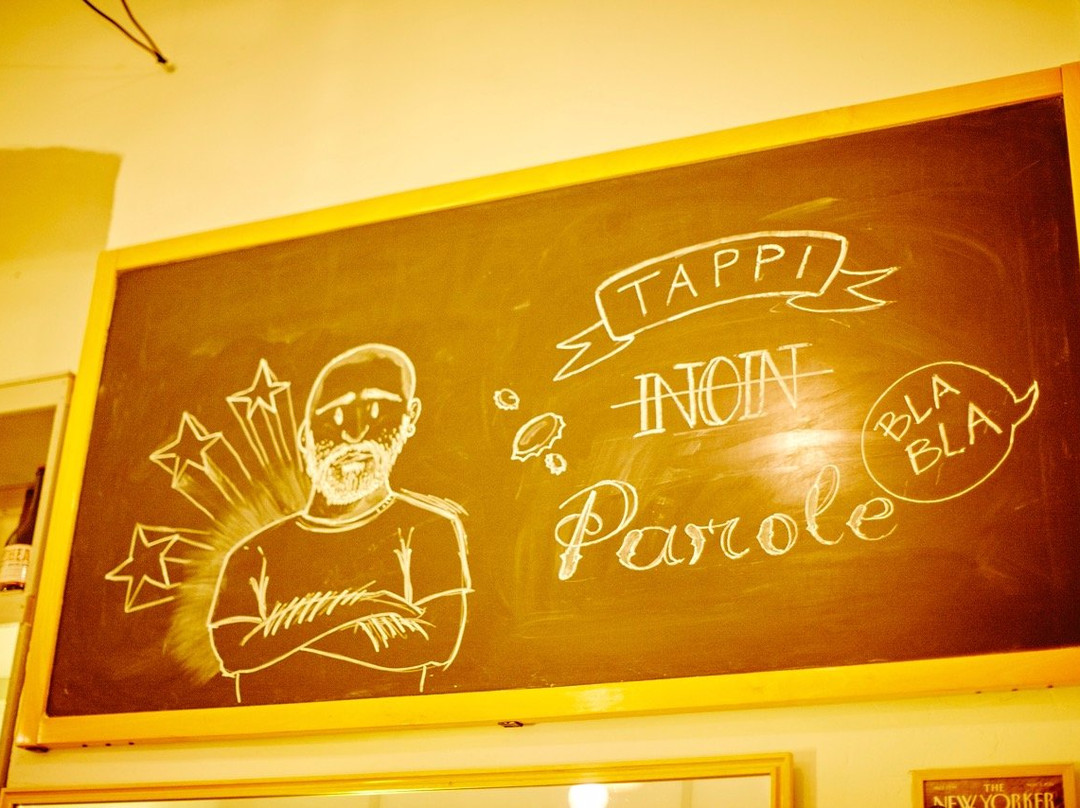 TAPPI
NON
Parole
BLA
BLA
THE
NEW YORKER